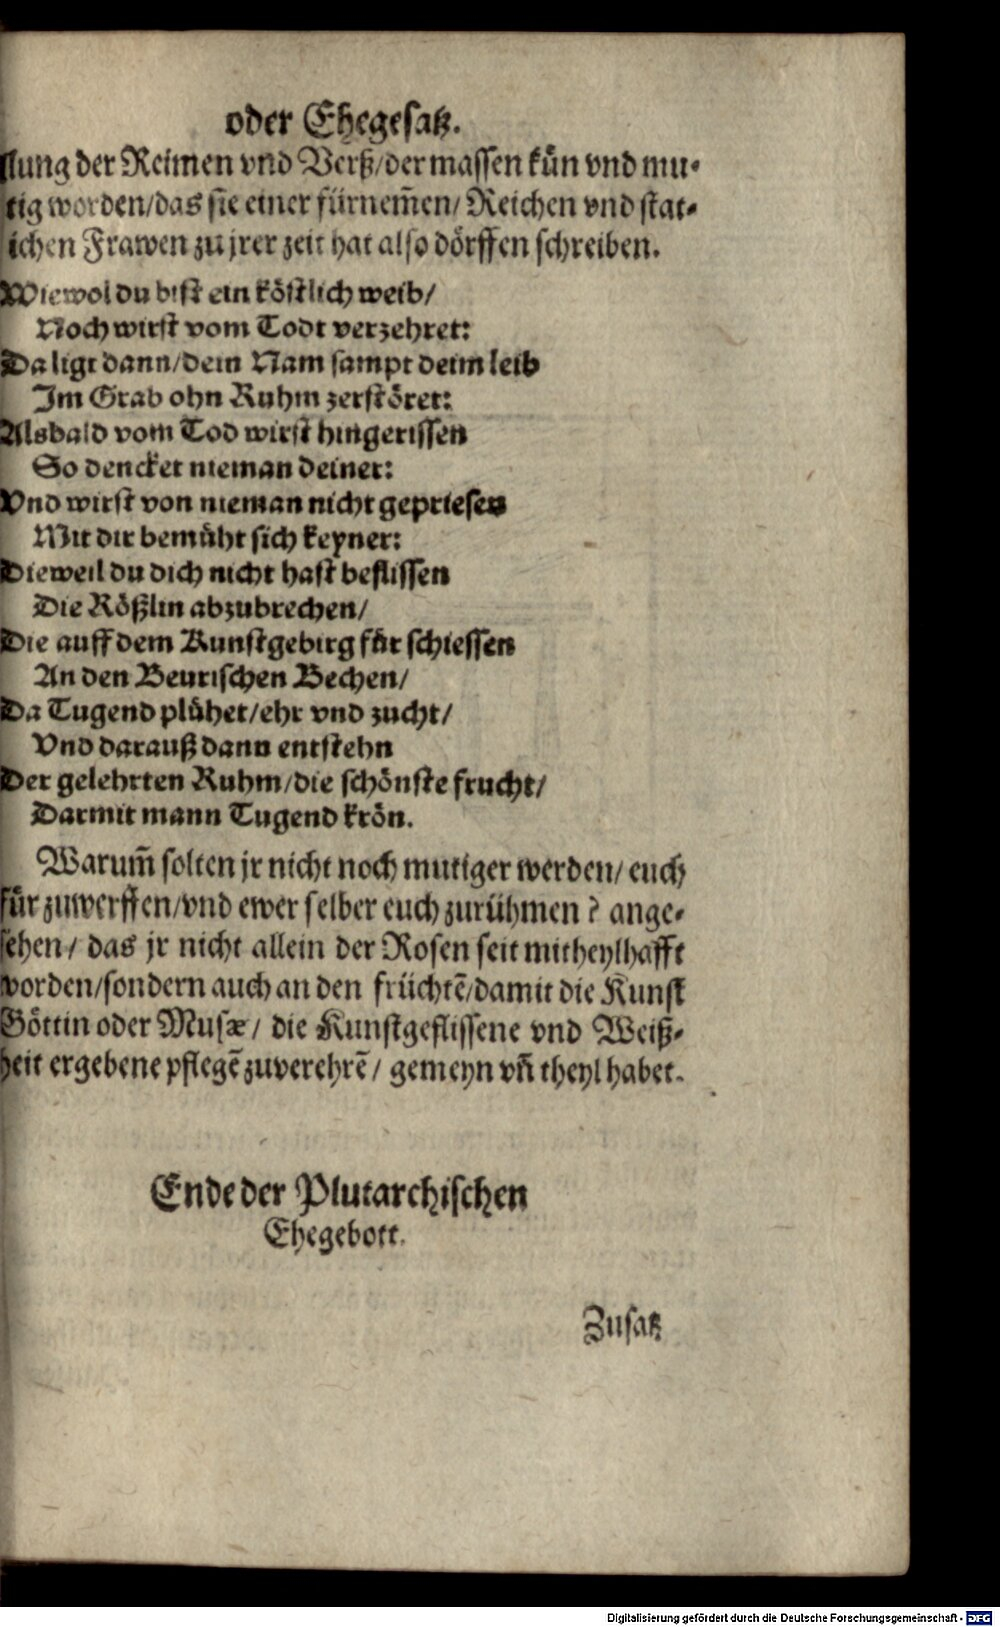 oder Ehegesatz.
llung der Reimen vnd Verß/der massen kün vnd mu⸗
tig worden/das sie einer fürnem̃en/ Reichen vnd stat⸗
ichen Frawen zu jrer zeit hat also dörffen schreiben.
Wiewol du bist ein köstlich weib/
Noch wirst vom Todt verzehret:
Da ligt dann/dein Nam sampt deim leib
Im Grab ohn Ruhm zerstöret:
Alsbald vom Tod wirst hingerissen
So dencket nieman deiner:
Vnd wirst von nieman nicht gepriesen
Mit dir bemüht sich keyner:
Dieweil du dich nicht hast beflissen
Die Rößlin abzubrechen/
Die auff dem Kunstgebirg für schiessen
An den Beurischen Bechen/
Da Tugend plühet/ehr vnd zucht/
Vnd darauß dann entstehn
Der gelehrten Ruhm/die schönste frucht/
Darmit mann Tugend krön.
Warum̃ solten jr nicht noch mutiger werden/ euch
für zuwerffen/vnd ewer selber euch zurühmen? ange⸗
sehen/ das jr nicht allein der Rosen seit mitheylhafft
worden/sondern auch an den früchtẽ/damit die Kunst
Göttin oder Musæ/ die Kunstgeflissene vnd Weiß⸗
heit ergebene pflegẽ zuverehrẽ/ gemeyn vñ theyl habet.
Ende der Plutarchischen
Ehegebott.
Zusatz
Digitalisierung gefördert durch die Deutsche Forschungsgemeinschaft - DFG